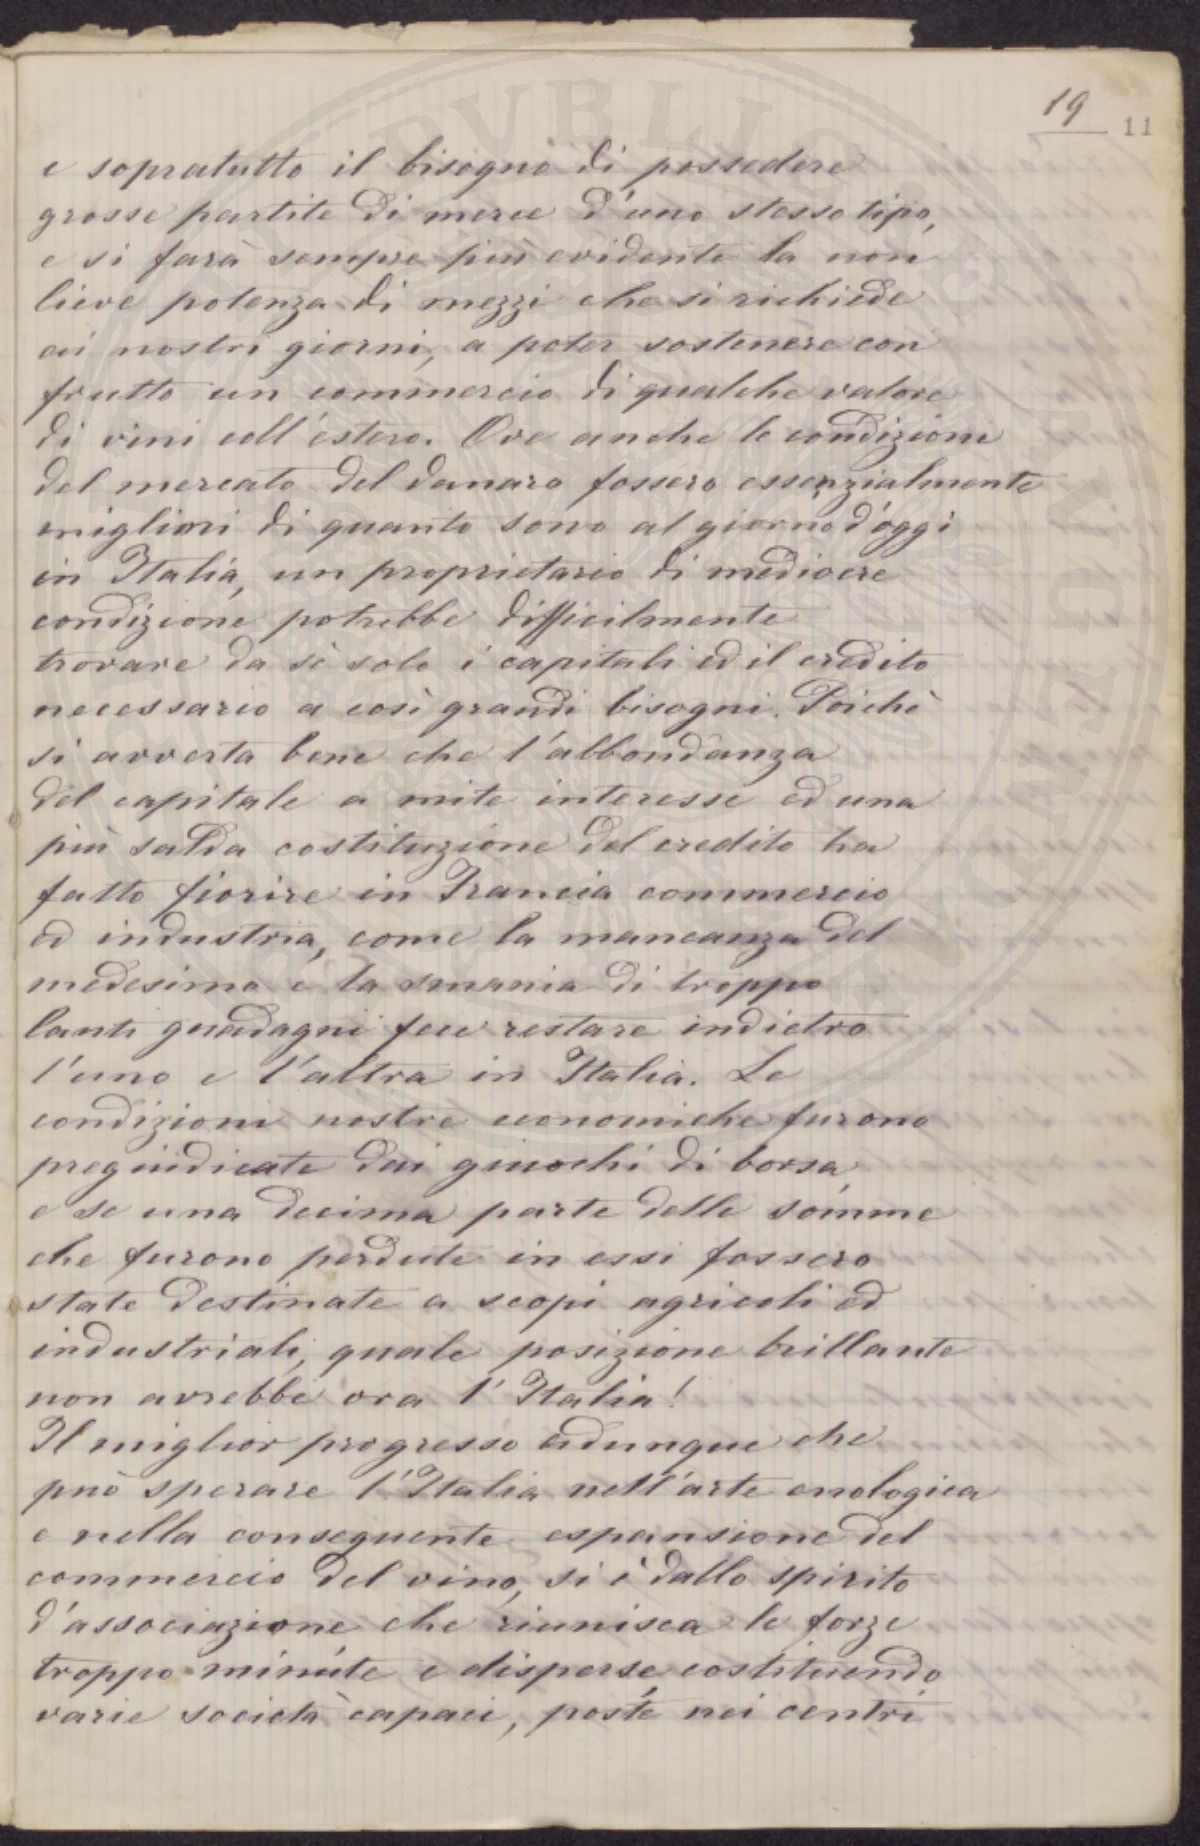 19
11
e sopratutto il bisogno di possedere
grosse partite di merce d'uno stesso tipo,
e si farà sempre più evidente la non
lieve potenza di mezzi che si richiede
ai nostri giorni, a poter sostenere con
frutto un commercio di qualche valore
di vini coll'estero. Ove anche le condizioni
del mercato del danaro fossero essenzialmente
migliori di quanto sono al giorno d'oggi
in Italia, un proprietario di mediocre
condizione potrebbe difficilmente
trovare da sè solo i capitali ed il credito
necessario a così grandi bisogni. Poichè
si avverta bene che l'abbondanza
del capitale a mite interesse ed una
più salda costituzione del credito ha
fatto fiorire in Francia commercio
ed industria, come la mancanza del
medesimo e la smania di troppo
lauti guadagni fece restare indietro
l'uno e l'altra in Italia. Le
condizioni nostre economiche furono
pregiudicate dai giuochi di borsa,
e se una decima parte delle somme
che furono perdute in essi fossero
state destinate a scopi agricoli ed
industriali, quale posizione brillante
non avrebbe ora l'Italia!
Il miglior progresso adunque che
può sperare l'Italia nell'arte enologica
e nella conseguente espansione del
commercio del vino, si è dallo spirito
d'associazione che riunisca le forze
troppo minute e disperse, costituendo
varie società capaci, poste nei centri